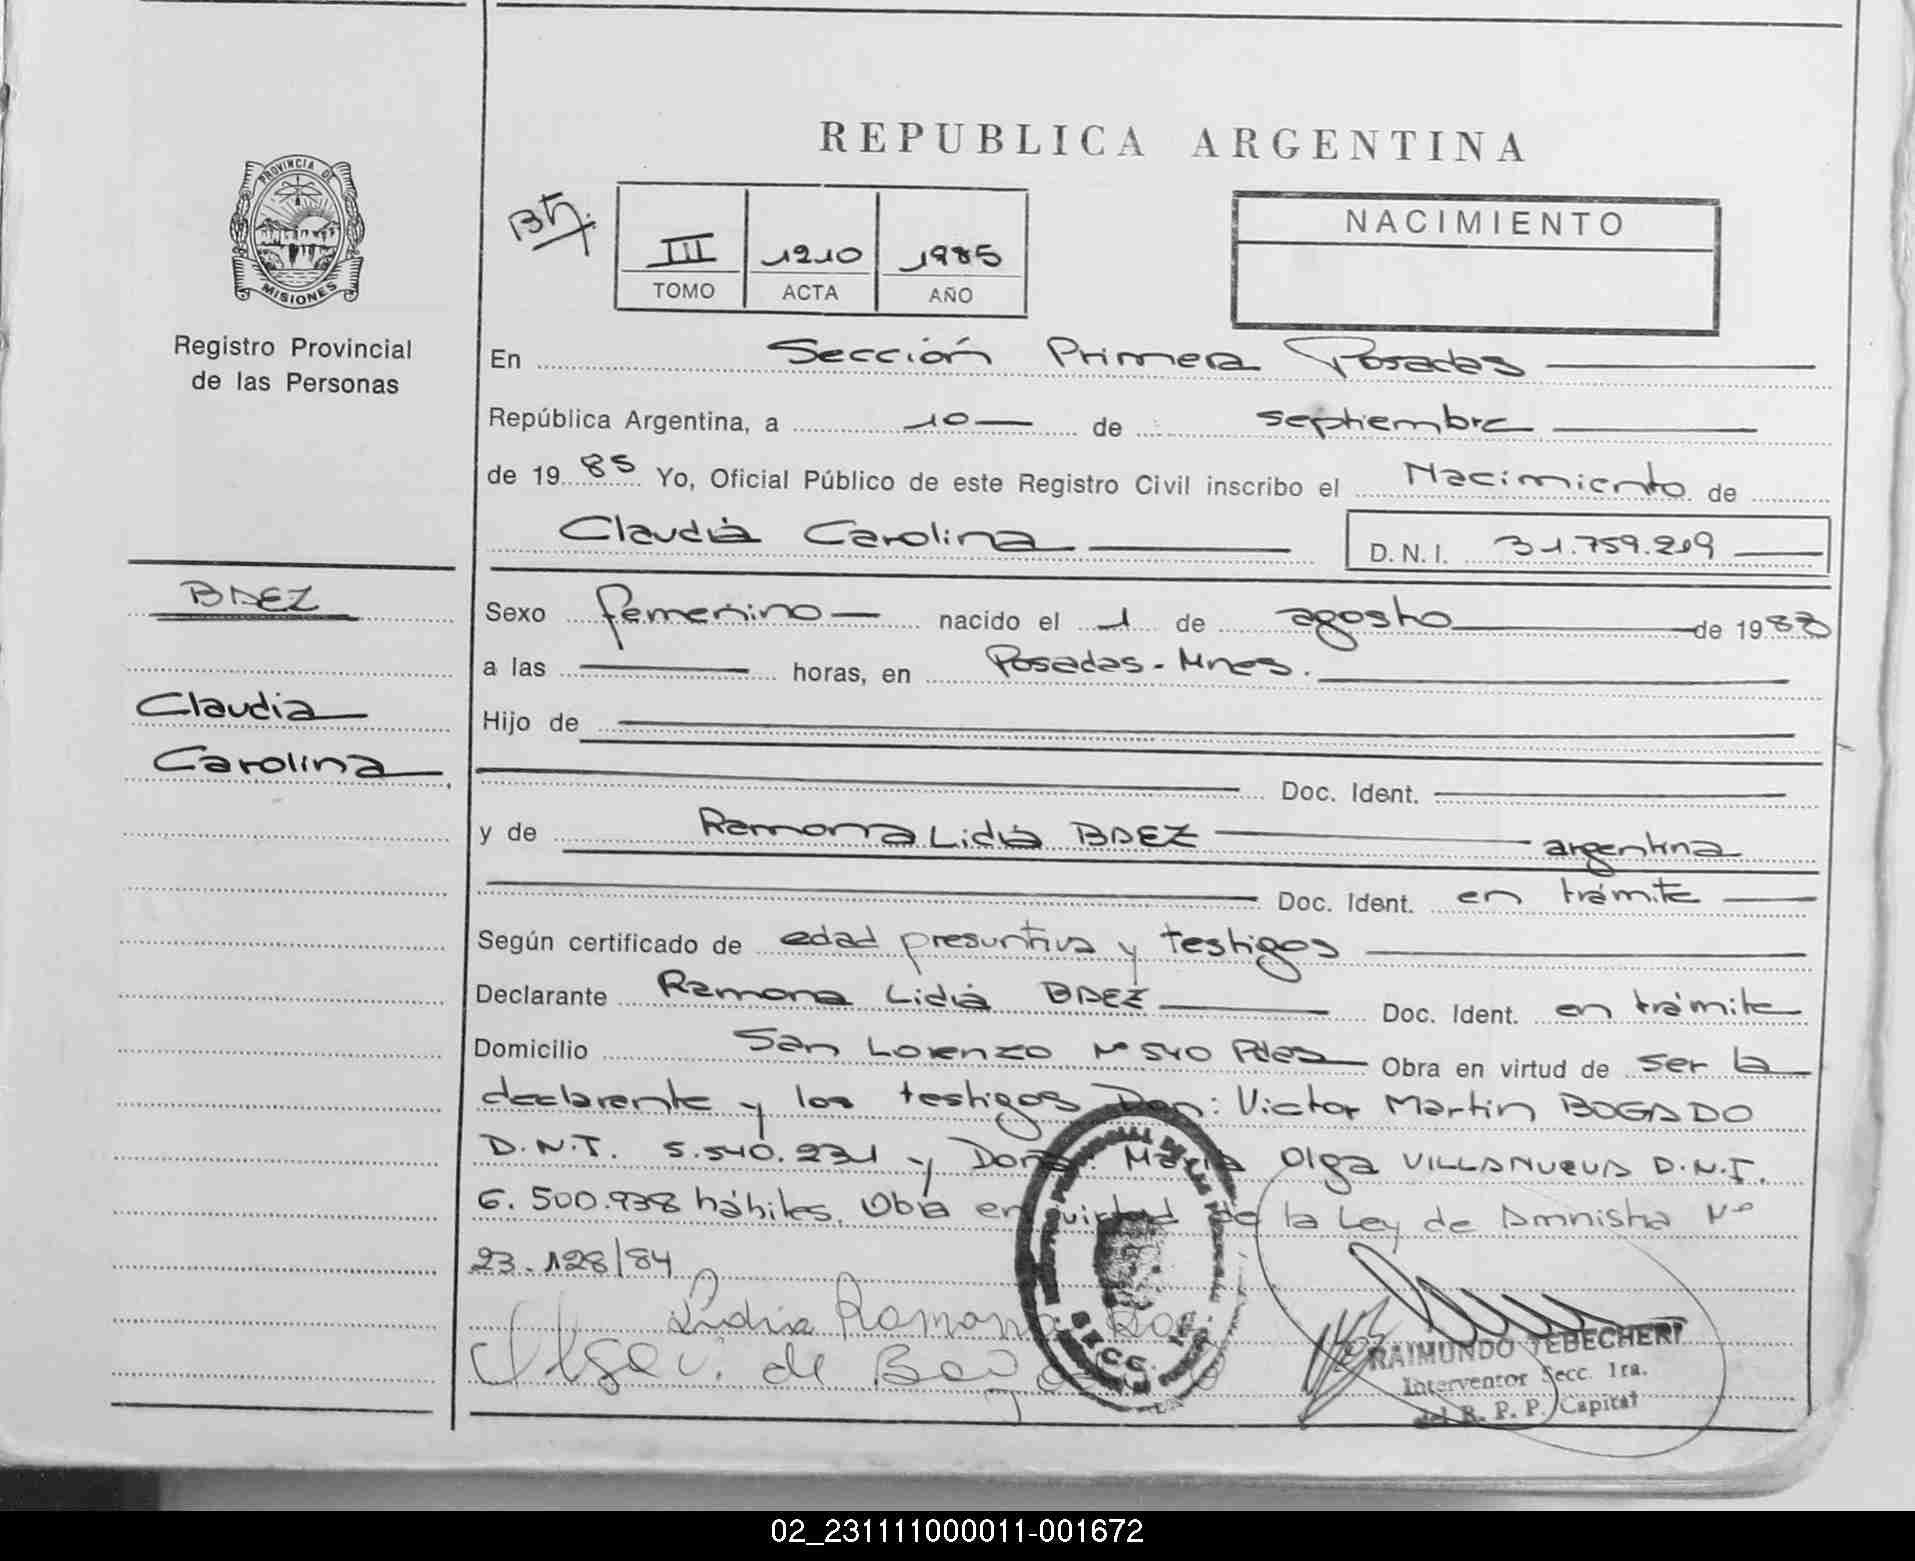 REPUBLICA ARGENTINA
PROVINCIA DE
MISIONES
Registro Provincial
de las Personas
III 1210 1985
TOMO ACTA AÑO
NACIMIENTO
En Sección Primera Posadas
República Argentina, a 10 de septiembre
de 19 85 Yo, Oficial Público de este Registro Civil inscribo el Nacimiento de
Claudia Carolina D.N.I. 31.759.219
BAEZ
Claudia
Carolina
Sexo femenino nacido el 1 de agosto de 19
a las horas, en Posadas - Mnes.
Hijo de
Doc. Ident.
y de Ramona Lidia BAEZ argentina
Doc. Ident. en trámite
Según certificado de edad presuntiva y testigos
Declarante Ramona Lidia BAEZ Doc. Ident. en trámite
Domicilio San Lorenzo Nº 540 Pdas Obra en virtud de ser la
declarante y los testigos Don: Victor Martin BOGADO
D.N.I. 5.540.231 y Doña: Maria Olga VILLANUEVA D.N.I.
6.500.938 hábiles. Obra en virtud de la Ley de Amnistia Nº
23.128/84
Lidia Ramona
Olga V. de
RAIMUNDO TEBECHERI
Interventor Secc. 1ra.
del R. P. P. Capital
02_231111000011-001672